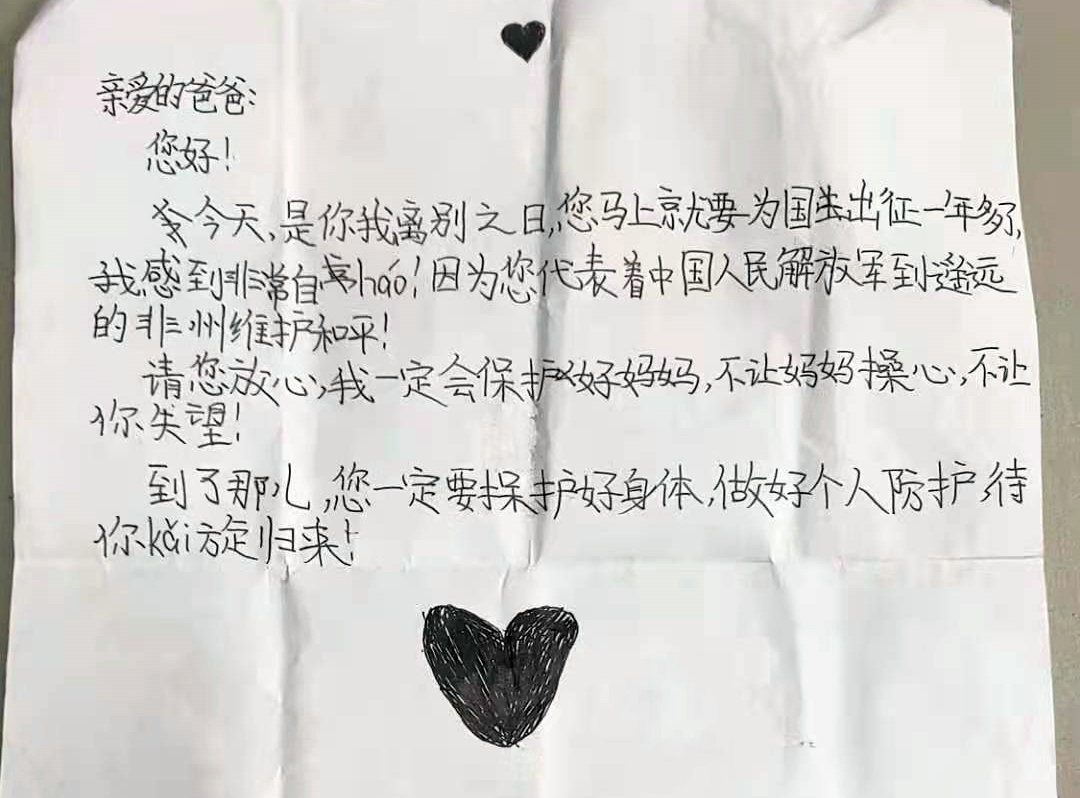 亲爱的爸爸:
您好!
今天,是你我离别之日,您马上就要为国出征一年多了,
我感到非常自háo!因为您代表着中国人民解放军到遥远
的非州维护和平!
请您放心,我一定会保护好妈妈,不让妈妈操心,不让
你失望!
到了那儿,您一定要保护好身体,做好个人防护,待
你kǎi旋归来!